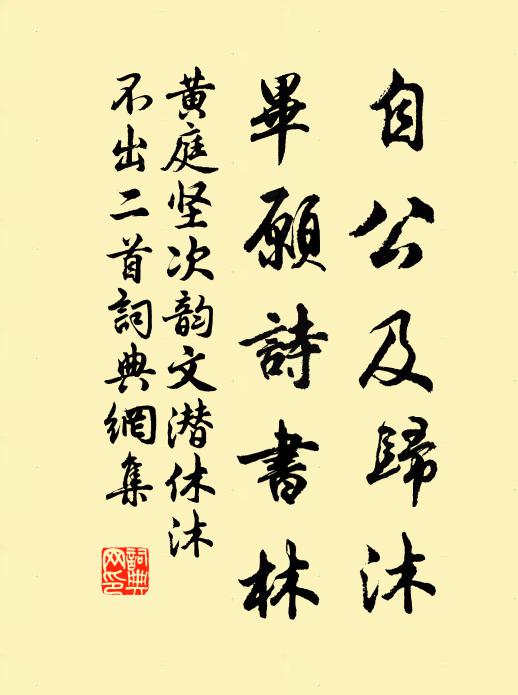 自公及歸沐
畢願詩書林
黄庭坚次韵文潜休沐
不出二首詞典網集
詞典网印